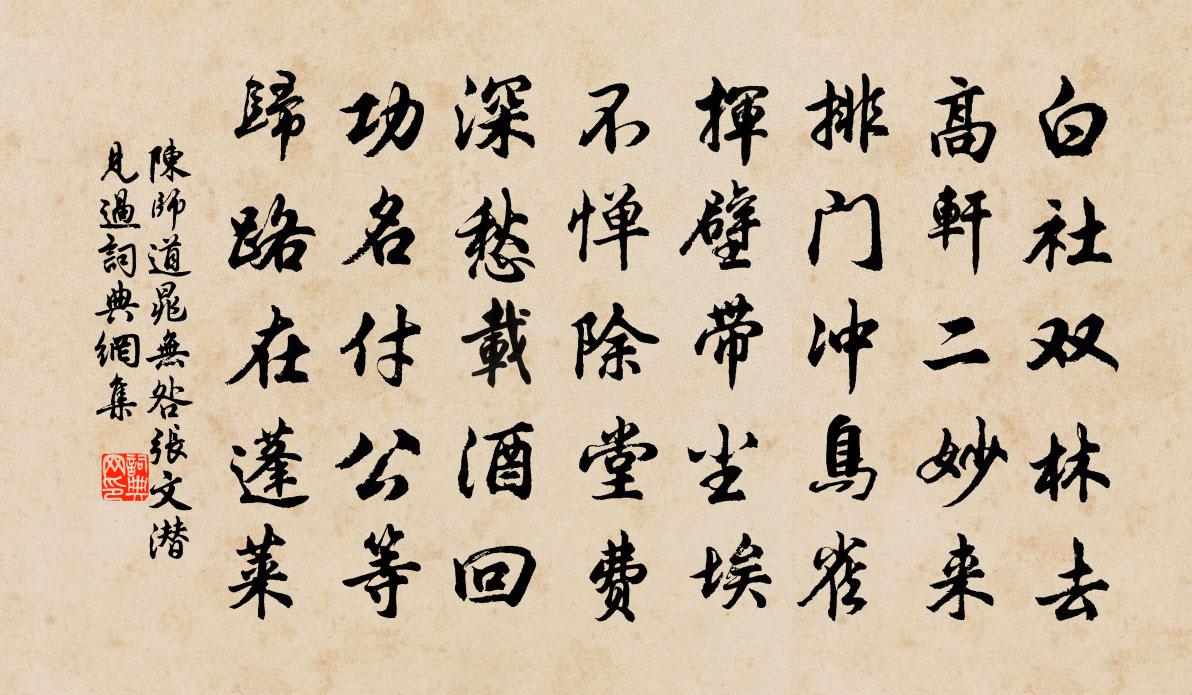 白社双林去
高軒二妙来
排门冲鳥雀
揮壁带尘埃
不惮除堂费
深愁載酒回
功名付公等
歸路在蓬莱
陳師道晁無咎張文潜
見過詞典網集
詞典网印